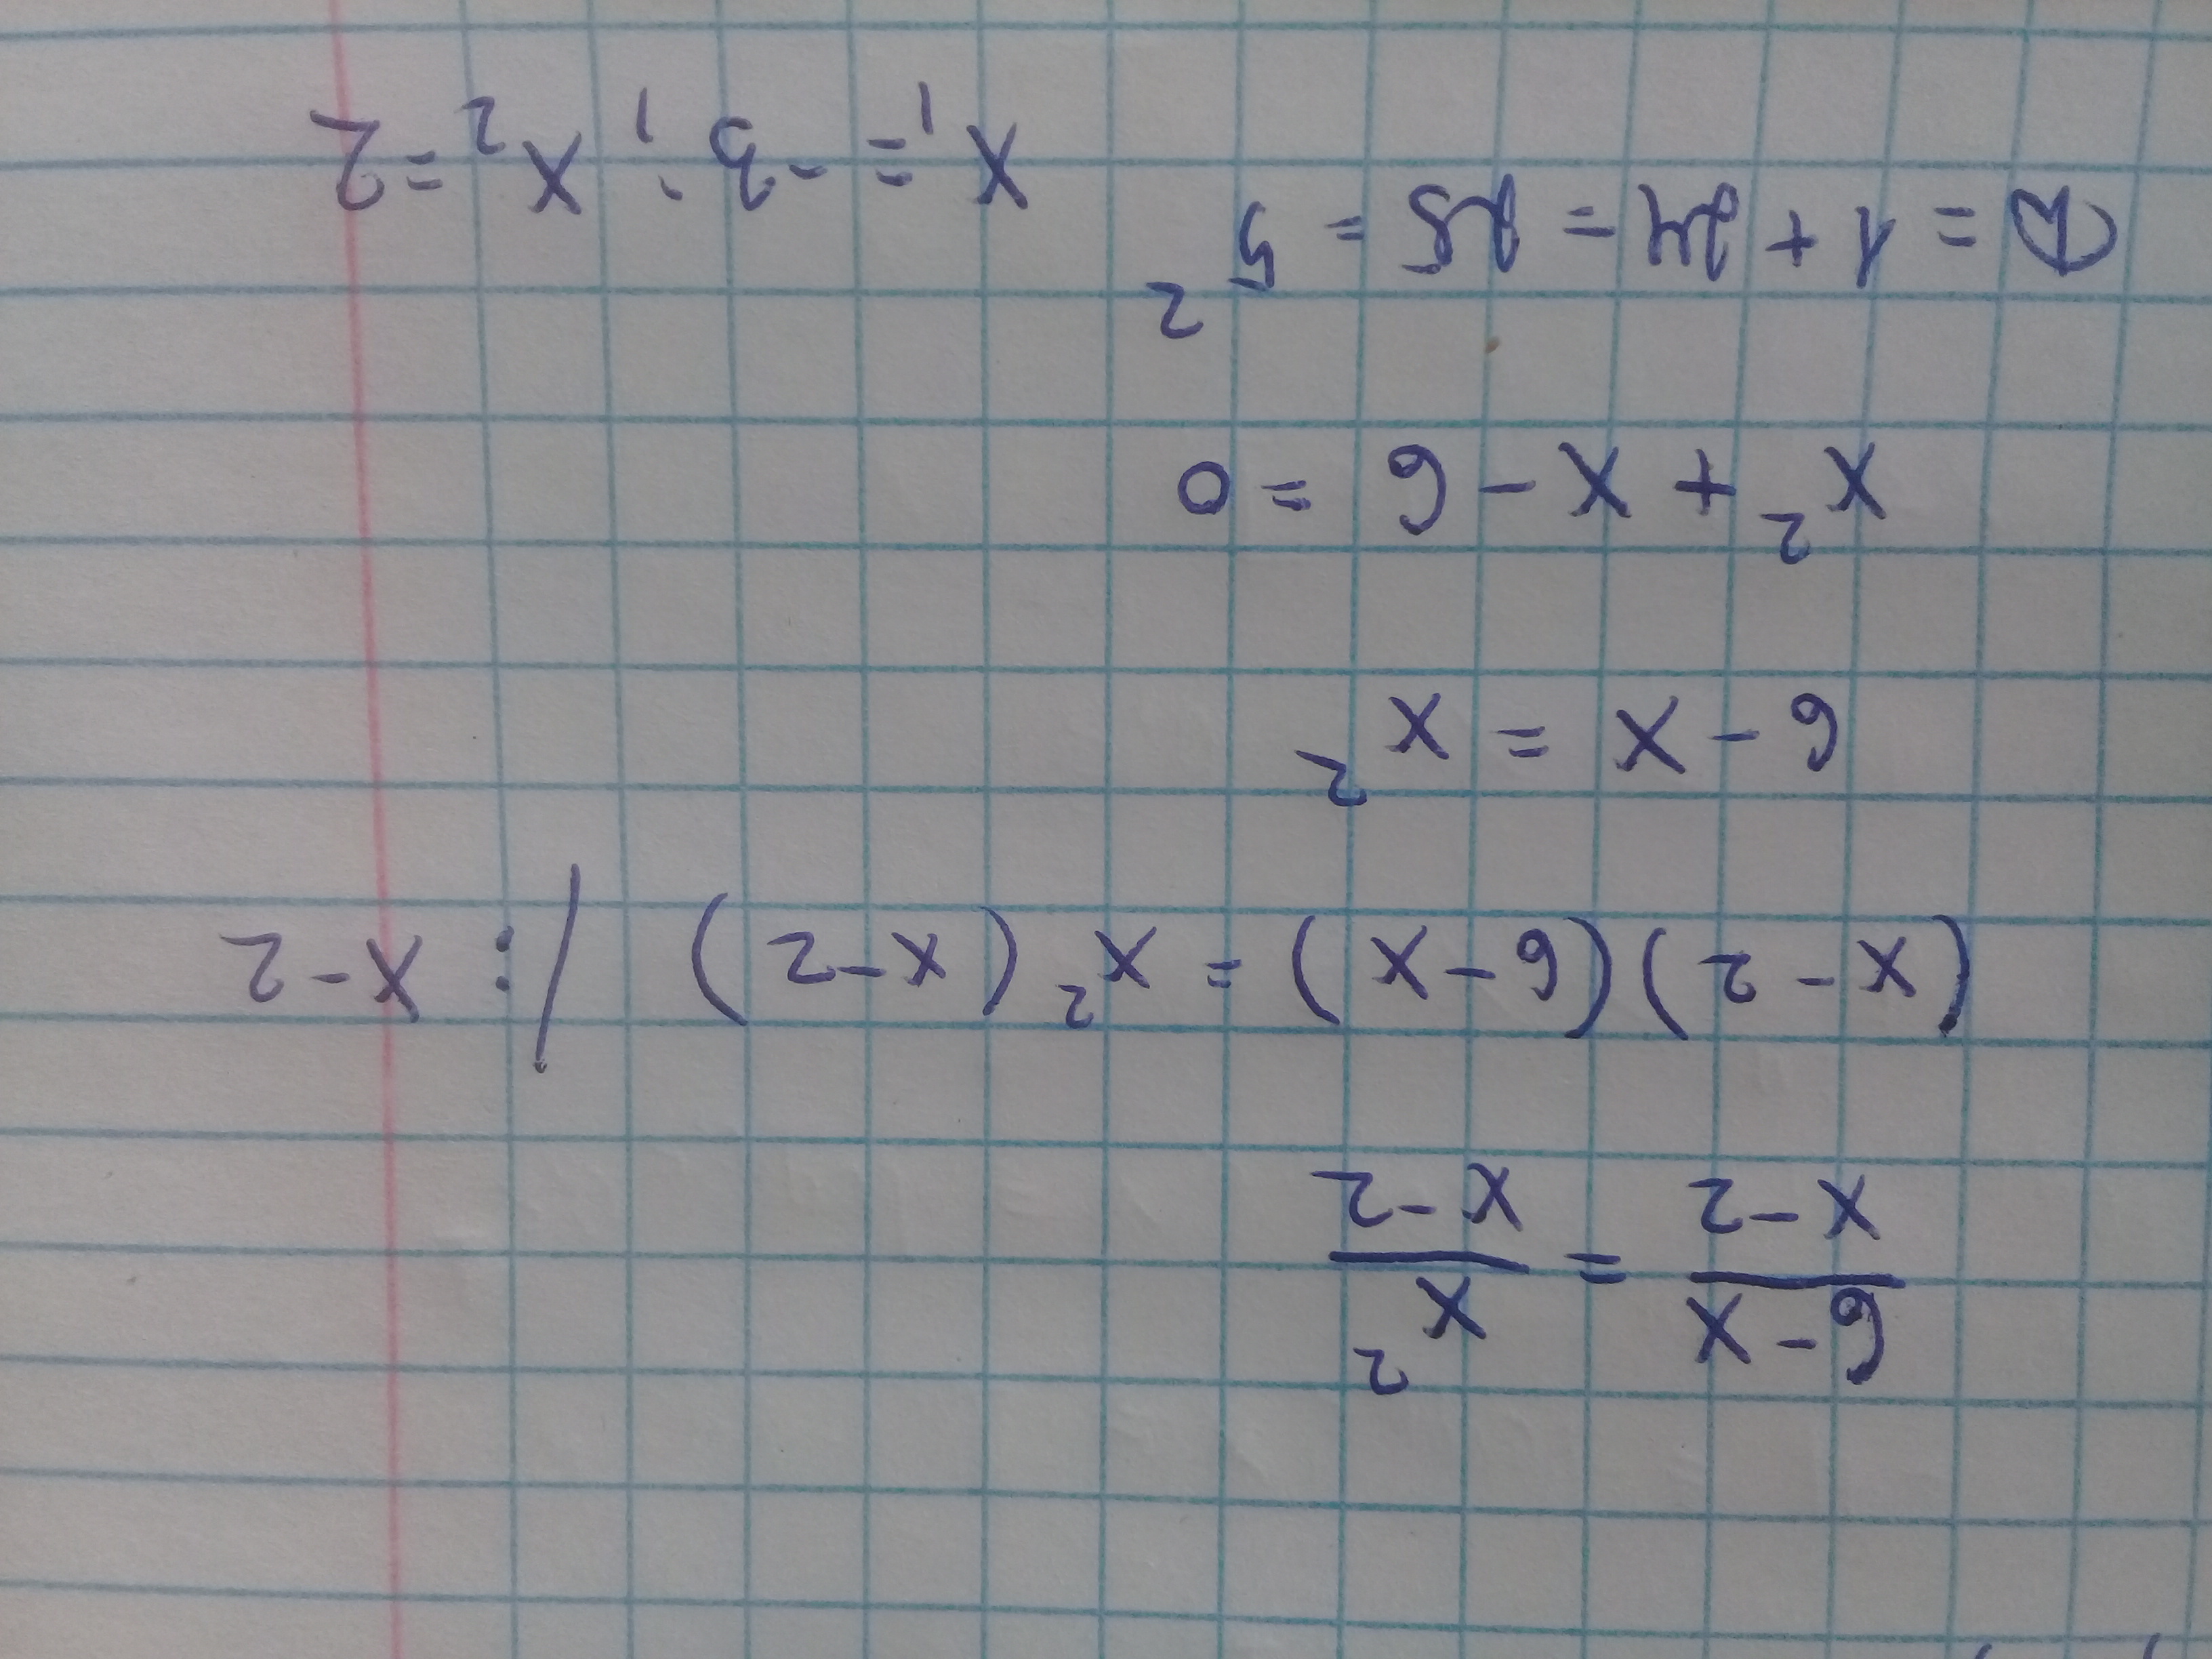 6-x/x-2 = x²/x-2
(x-2)(6-x) = x²(x-2) /: x-2
6-x = x²
x² + x - 6 = 0
D = 1 + 24 = 25 = 5²
x₁ = -3; x₂ = 2